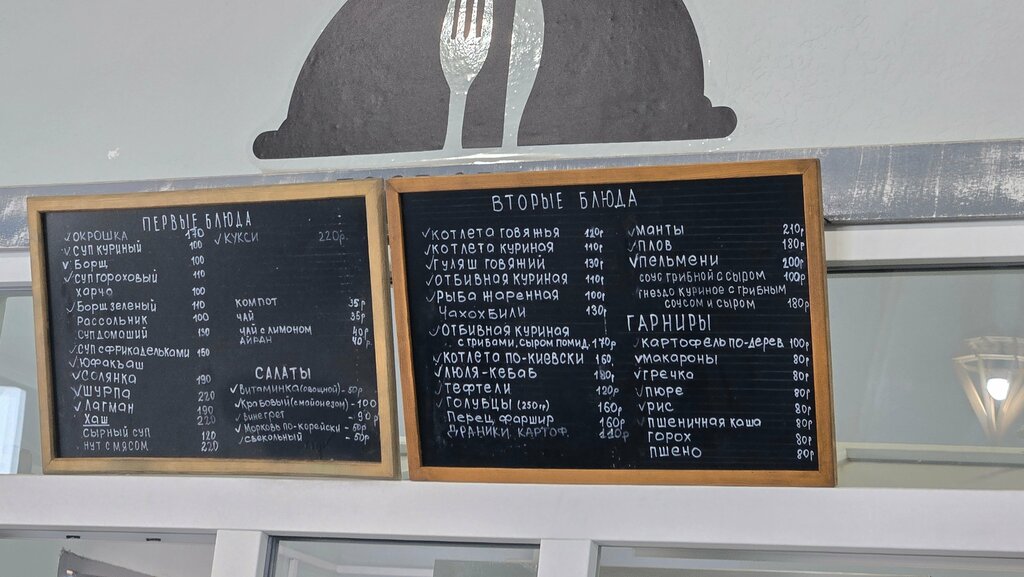 ПЕРВЫЕ БЛЮДА
✓ОКРОШКА 170
✓СУП КУРИНЫЙ 100
✓Борщ 100
✓СУП ГОРОХОВЫЙ 110
ХАРЧО 100
✓Борщ зеленый 110
Рассольник 100
СУП ДОМАШИЙ 130
✓СУП С ФРИКАДЕЛЬКАМИ 150
✓ЮФАКЪАШ
✓СОЛЯНКА 190
✓ШУРПА 220
✓ЛАГМАН 190
ХАШ 220
СЫРНЫЙ СУП 120
НУТ С МЯСОМ 220
✓КУКСИ 220р.
КОМПОТ 35р
ЧАЙ 35р
ЧАЙ С ЛИМОНОМ 40р
АЙРАН 40р
САЛАТЫ
✓ВИТАМИНКА (ОВОЩНОЙ) - 50р
✓КРАБОВЫЙ (С МАЙОНЕЗОМ) - 100
✓ВИНЕГРЕТ - 90р
✓МОРКОВЬ ПО-КОРЕЙСКИ - 50р
✓СВЕКОЛЬНЫЙ - 50р
ВТОРЫЕ БЛЮДА
✓КОТЛЕТА ГОВЯЖЬЯ 120р
✓КОТЛЕТА КУРИНАЯ 110р
✓ГУЛЯШ ГОВЯЖИЙ 130р
✓ОТБИВНАЯ КУРИНАЯ 110р
✓РЫБА ЖАРЕННАЯ 100р
ЧАХОХБИЛИ 130р
✓ОТБИВНАЯ КУРИНАЯ
С ГРИБАМИ, СЫРОМ ПОМИД. 170р
✓КОТЛЕТА ПО-КИЕВСКИ 160
✓ЛЮЛЯ-КЕБАБ 180р
✓ТЕФТЕЛИ 120р
✓ГОЛУБЦЫ (250гр) 160р
Перец фаршир 160р
ДРАНИКИ КАРТОФ. 110р
✓МАНТЫ 210р
✓ПЛОВ 180р
✓ПЕЛЬМЕНИ 200р
СОУС ГРИБНОЙ С СЫРОМ 100р
ГНЕЗДО КУРИНОЕ С ГРИБНЫМ
СОУСОМ И СЫРОМ 180р
ГАРНИРЫ
✓КАРТОФЕЛЬ ПО-ДЕРЕВ 100р
✓МАКАРОНЫ 80р
✓ГРЕЧКА 80р
✓ПЮРЕ 80р
✓РИС 80р
✓ПШЕНИЧНАЯ КАША 80р
ГОРОХ 80р
ПШЕНО 80р